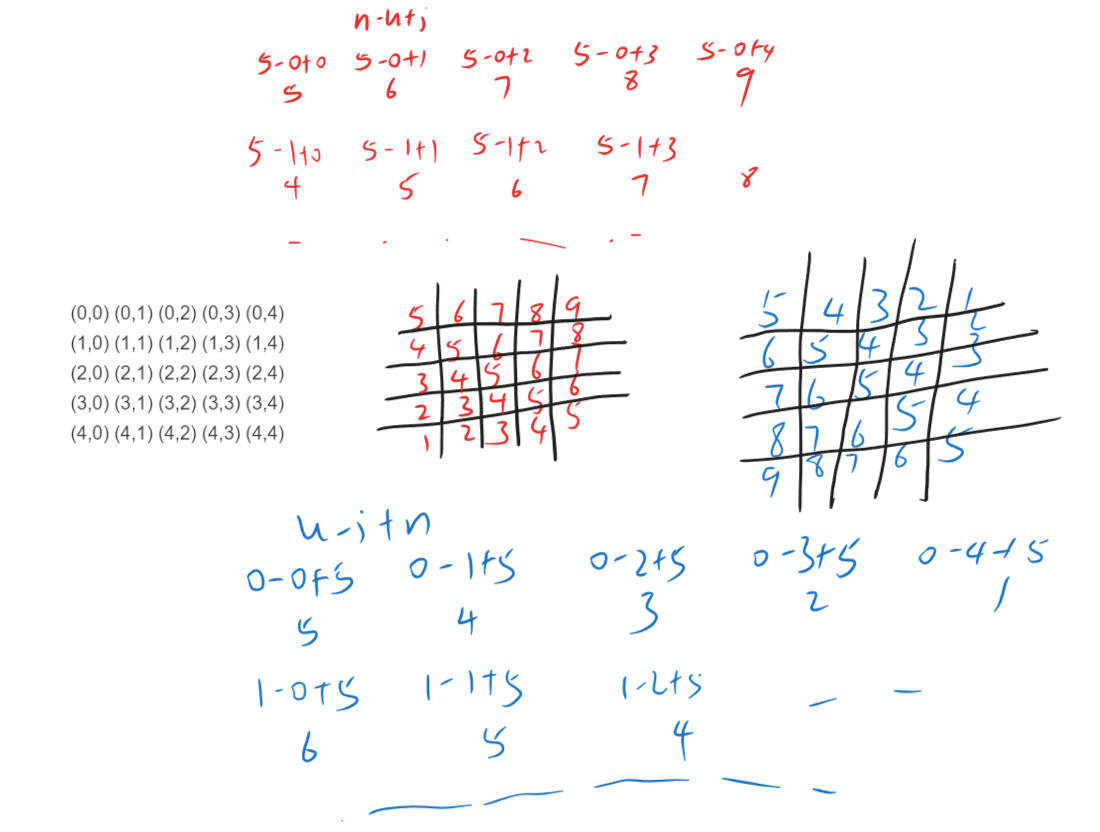 n-u+j
5-0+0 5-0+1 5-0+2 5-0+3 5-0+4
5 6 7 8 9
5-1+0 5-1+1 5-1+2 5-1+3
4 5 6 7 8
(0,0) (0,1) (0,2) (0,3) (0,4)
(1,0) (1,1) (1,2) (1,3) (1,4)
(2,0) (2,1) (2,2) (2,3) (2,4)
(3,0) (3,1) (3,2) (3,3) (3,4)
(4,0) (4,1) (4,2) (4,3) (4,4)
5 6 7 8 9
4 5 6 7 8
3 4 5 6 7
2 3 4 5 6
1 2 3 4 5
5 4 3 2 1
6 5 4 3 2
7 6 5 4 3
8 7 6 5 4
9 8 7 6 5
u-j+n
0-0+5 0-1+5 0-2+5 0-3+5 0-4+5
5 4 3 2 1
1-0+5 1-1+5 1-2+5
6 5 4